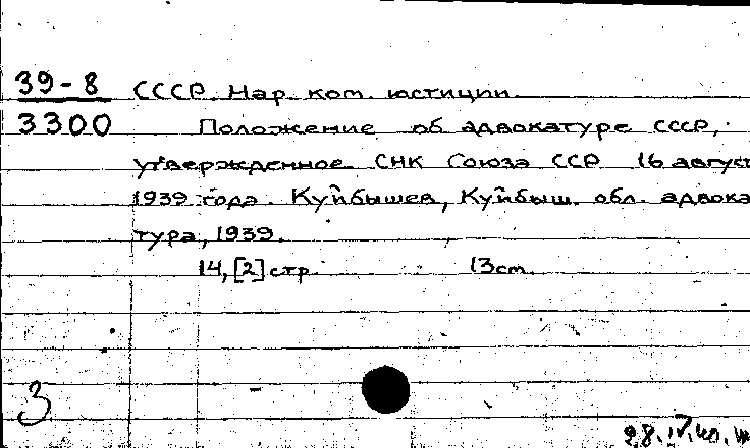 39-8
3300
СССР. Нар. ком. юстиции.
Положение об адвокатуре СССР,
утвержденное СНК Союза ССР 16 август
1939 года. Куйбышев, Куйбыш. обл. адвока
тура, 1939.
14, [2] стр. 13см.
3